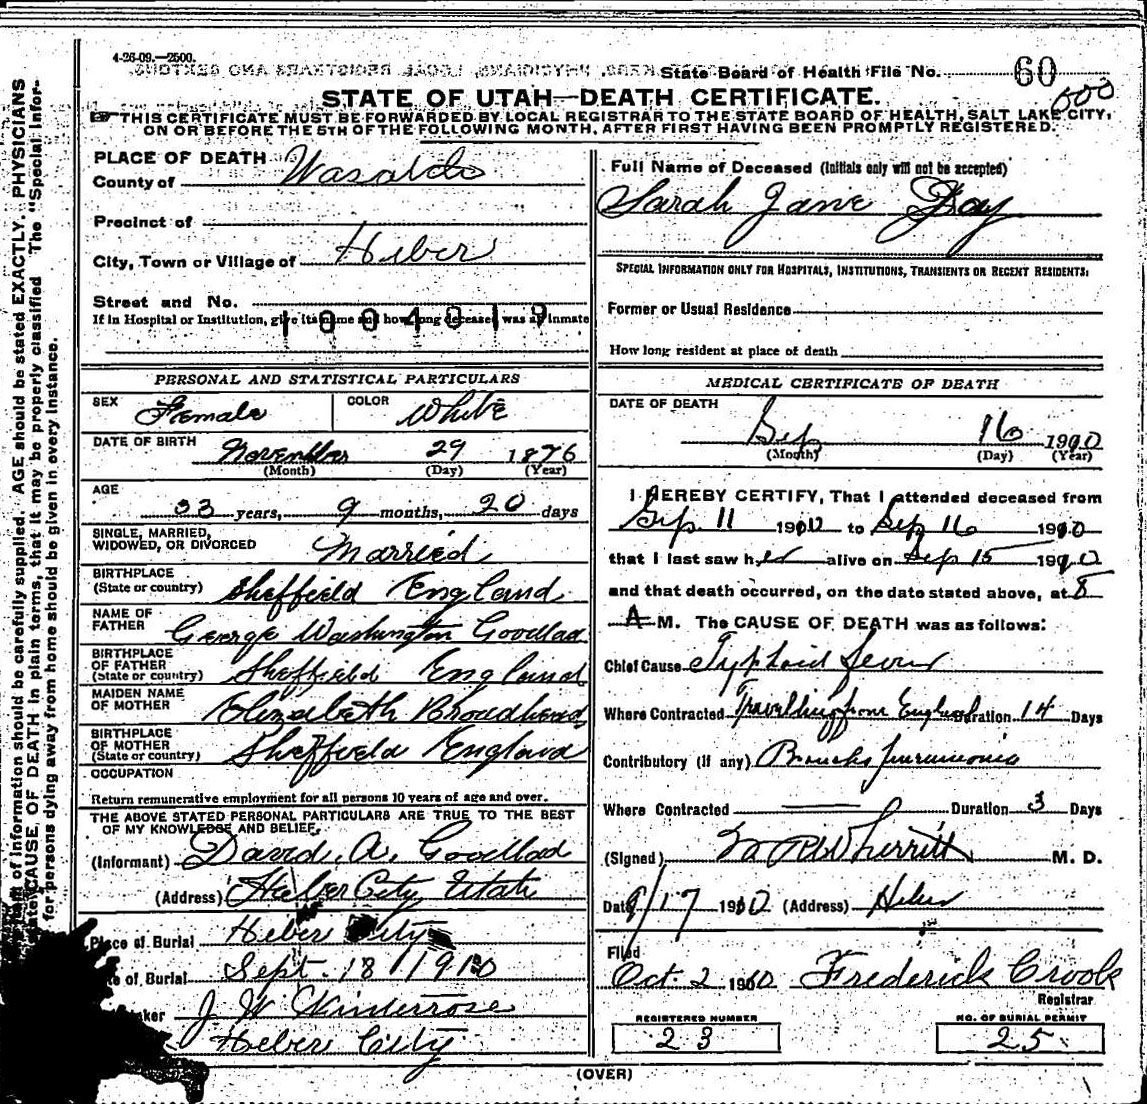 4-26-09.—2500.
State Board of Health File No. 60
600
STATE OF UTAH—DEATH CERTIFICATE.
THIS CERTIFICATE MUST BE FORWARDED BY LOCAL REGISTRAR TO THE STATE BOARD OF HEALTH, SALT LAKE CITY,
ON OR BEFORE THE 5TH OF THE FOLLOWING MONTH, AFTER FIRST HAVING BEEN PROMPTLY REGISTERED.
PLACE OF DEATH
County of
Precinct of
City, Town or Village of Heber
Street and No.
If in Hospital or Institution, give its name and how long deceased was an inmate
1004019
PERSONAL AND STATISTICAL PARTICULARS
SEX Female COLOR White
DATE OF BIRTH November 29 1876
(Month) (Day) (Year)
AGE
33 years, 9 months, 20 days
SINGLE, MARRIED,
WIDOWED, OR DIVORCED Married
BIRTHPLACE
(State or country) Sheffield England
NAME OF
FATHER George Washington Goodlad
BIRTHPLACE
OF FATHER
(State or country) Sheffield England
MAIDEN NAME
OF MOTHER Elizabeth Broadhead
BIRTHPLACE
OF MOTHER
(State or country) Sheffield England
OCCUPATION
Return remunerative employment for all persons 10 years of age and over.
THE ABOVE STATED PERSONAL PARTICULARS ARE TRUE TO THE BEST
OF MY KNOWLEDGE AND BELIEF,
(Informant) David. A. Goodlad
(Address) Heber City Utah
Place of Burial Heber City
of Burial Sept. 18 1910
J W
Heber City
Full Name of Deceased (Initials only will not be accepted)
Sarah Jane Gray
SPECIAL INFORMATION ONLY FOR HOSPITALS, INSTITUTIONS, TRANSIENTS OR RECENT RESIDENTS:
Former or Usual Residence
How long resident at place of death
MEDICAL CERTIFICATE OF DEATH
DATE OF DEATH
Sep 16 1910
(Month) (Day) (Year)
I HEREBY CERTIFY, That I attended deceased from
Sep. 11 1910 to Sep 16 1910
that I last saw her alive on Sep 15 1910
and that death occurred, on the date stated above, at 8
A M. The CAUSE OF DEATH was as follows:
Chief Cause Typhoid Fever
Where Contracted Travelling from England Duration 14 Days
Contributory (if any) Broncho pneumonia
Where Contracted Duration 3 Days
(Signed) Wherritt M. D.
Date 9/17 1910 (Address) Heber
Filed
Oct. 2 1910 Frederick Crook
Registrar
REGISTERED NUMBER
23
NO. OF BURIAL PERMIT
25
(OVER)
of information should be carefully supplied. AGE should be stated EXACTLY. PHYSICIANS
state CAUSE OF DEATH in plain terms, that it may be properly classified. The "Special Infor-
for persons dying away from home should be given in every instance.